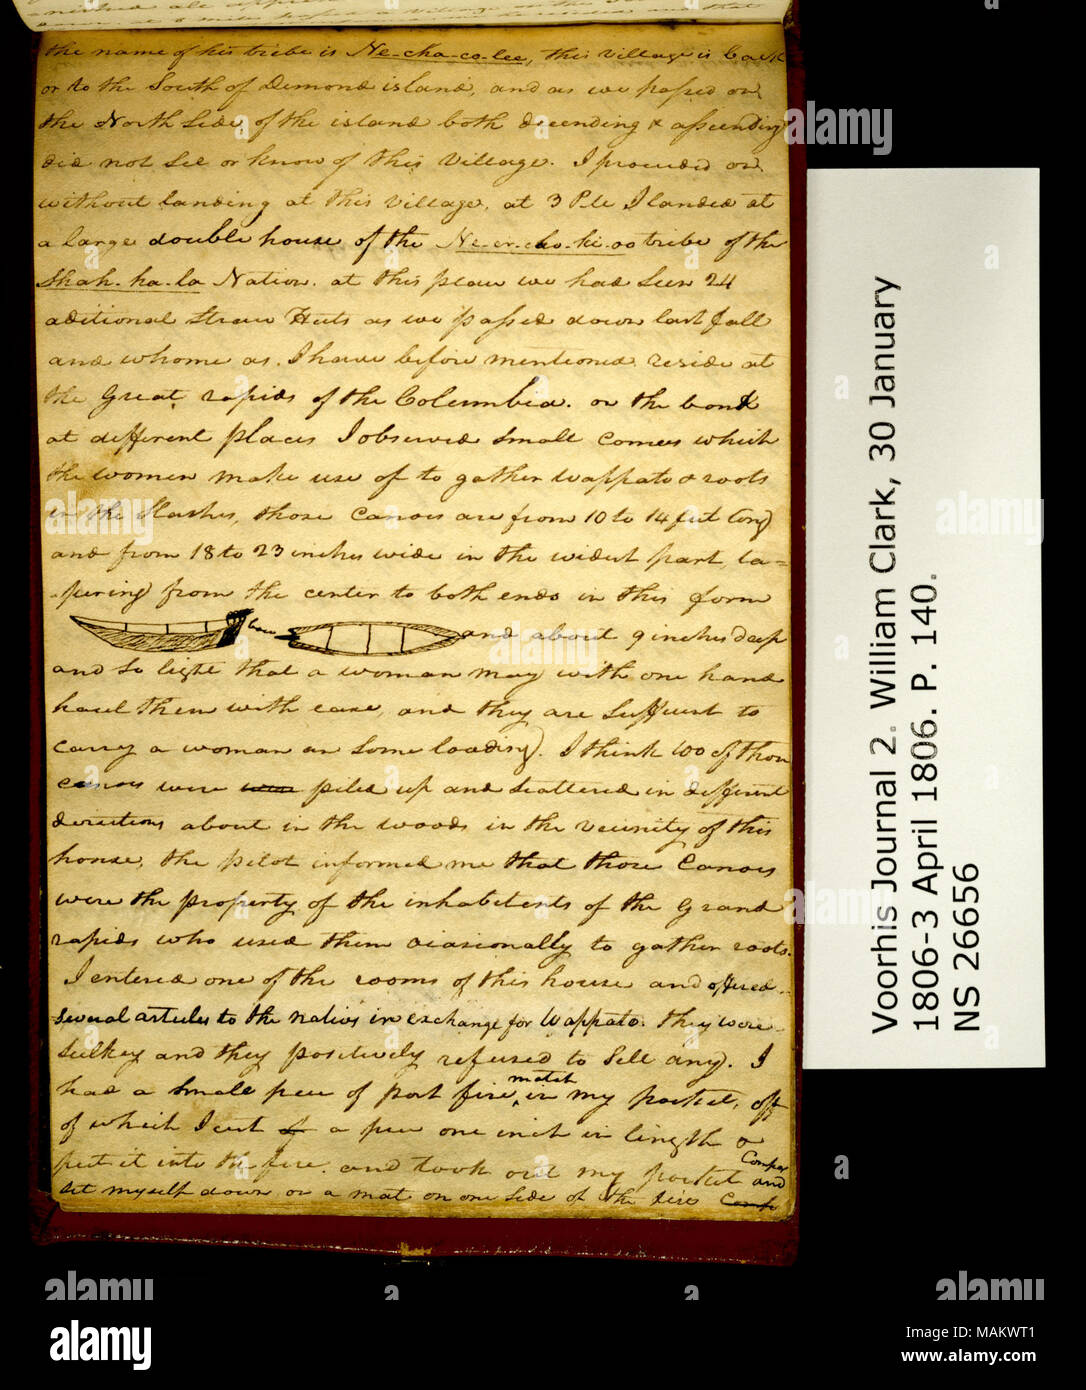 the name of his tribe is Ne-cha-co-lee, this village is back
or to the South of Demond island, and as we passed on
the North Side of the island both decending & assending
did not See or know of this Village. I proceeded on
without landing at this village. at 3 P.M. I landed at
a large double house of the Ne-er-cho-ki-oo tribe of the
Shah-ha-la Nation. at this place we had Seen 24
aditional Straw Huts as we passed down last fall
and whome as I have before mentioned reside at
the Great rapids of the Columbia. on the bank
at different places I observed Small Canoes which
the women make use of to gather wappato & roots
in the Slashes, those Canoes are from 10 to 14 feet long
and from 18 to 23 inches wide in the widest part ta=
-pering from the center to both ends in this form
bow and about 9 inches deep
and So light that a woman may with one hand
haul them with ease, and they are Suffient to
carry a woman an Some loading. I think 100 of those
canoes were piled up and Scattered in different
directions about in the woods in the vecinity of this
house, the pilot informed me that those Canoes
were the property of the inhabitents of the Grand
rapids who used them ocasionally to gather roots.
I entered one of the rooms of this house and offered
Several articles to the nativs in exchange for Wappato. they were
Sulkey and they positively refused to Sell any. I
had a Small pece of port fire match in my pocket, off
of which I cut of a pece one inch in length &
put it into the fire. and took out my pocket Compas and
Set myself down on a mat on one Side of the fire Comp
Voorhis Journal 2. William Clark, 30 January
1806-3 April 1806. P. 140.
NS 26656
alamy
a
Image ID: MAKWT1
www.alamy.com